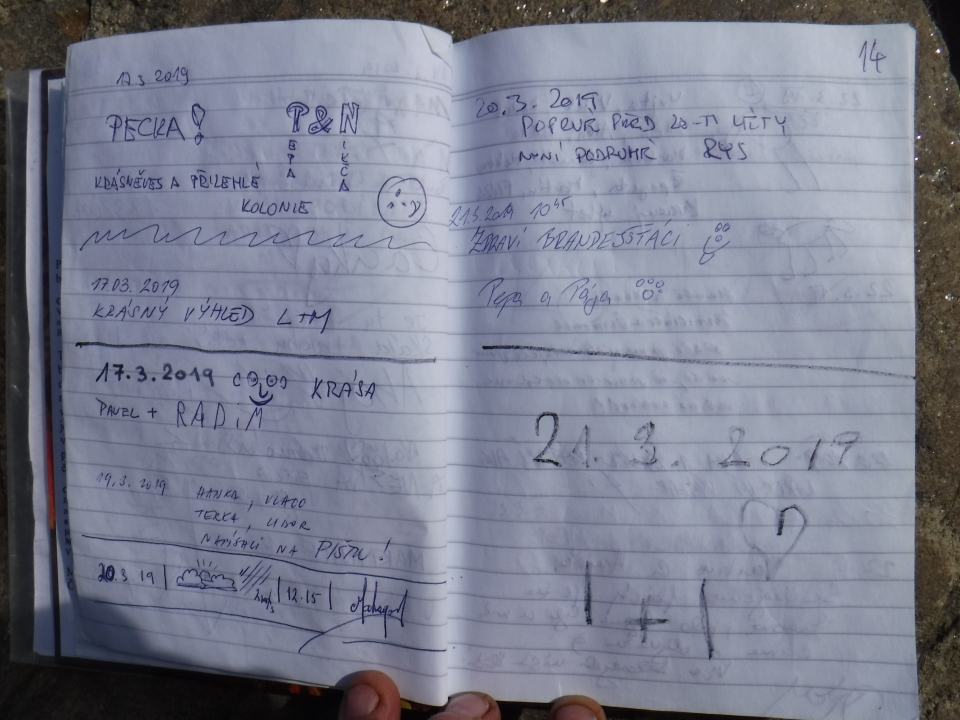 17.3 2019
PECKA!
P&N
EPA
IKČA
KRÁSNĚVES A PŘILEHLÉ
KOLONIE
17.03. 2019
KRÁSNÝ VÝHLED L+M
17.3.2019 KRÁSA
PAVEL + RADIM
19.3. 2019 HANKA, VLADO
TERKA, LIBOR
NAPÍSALI NA
20.3 19 2m/s 12.15
14
20.3. 2019
POPRVÉ PŘED 20-TI LÉTY
NYNÍ PODRUHÉ RYS
21.3.2019 10 45
ZDRAVÍ BRANDEJŠTÁCI
Pepa a Pája
21. 3. 2019
1+1